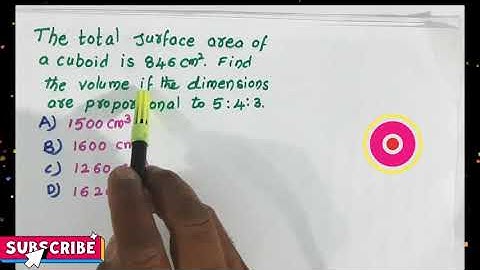 The total surface area of
a cuboid is 846 cm². Find
the volume if the dimensions
are proportional to 5:4:3.
A) 1500 cm³
B) 1600
C) 1260
D)
SUBSCRIBE